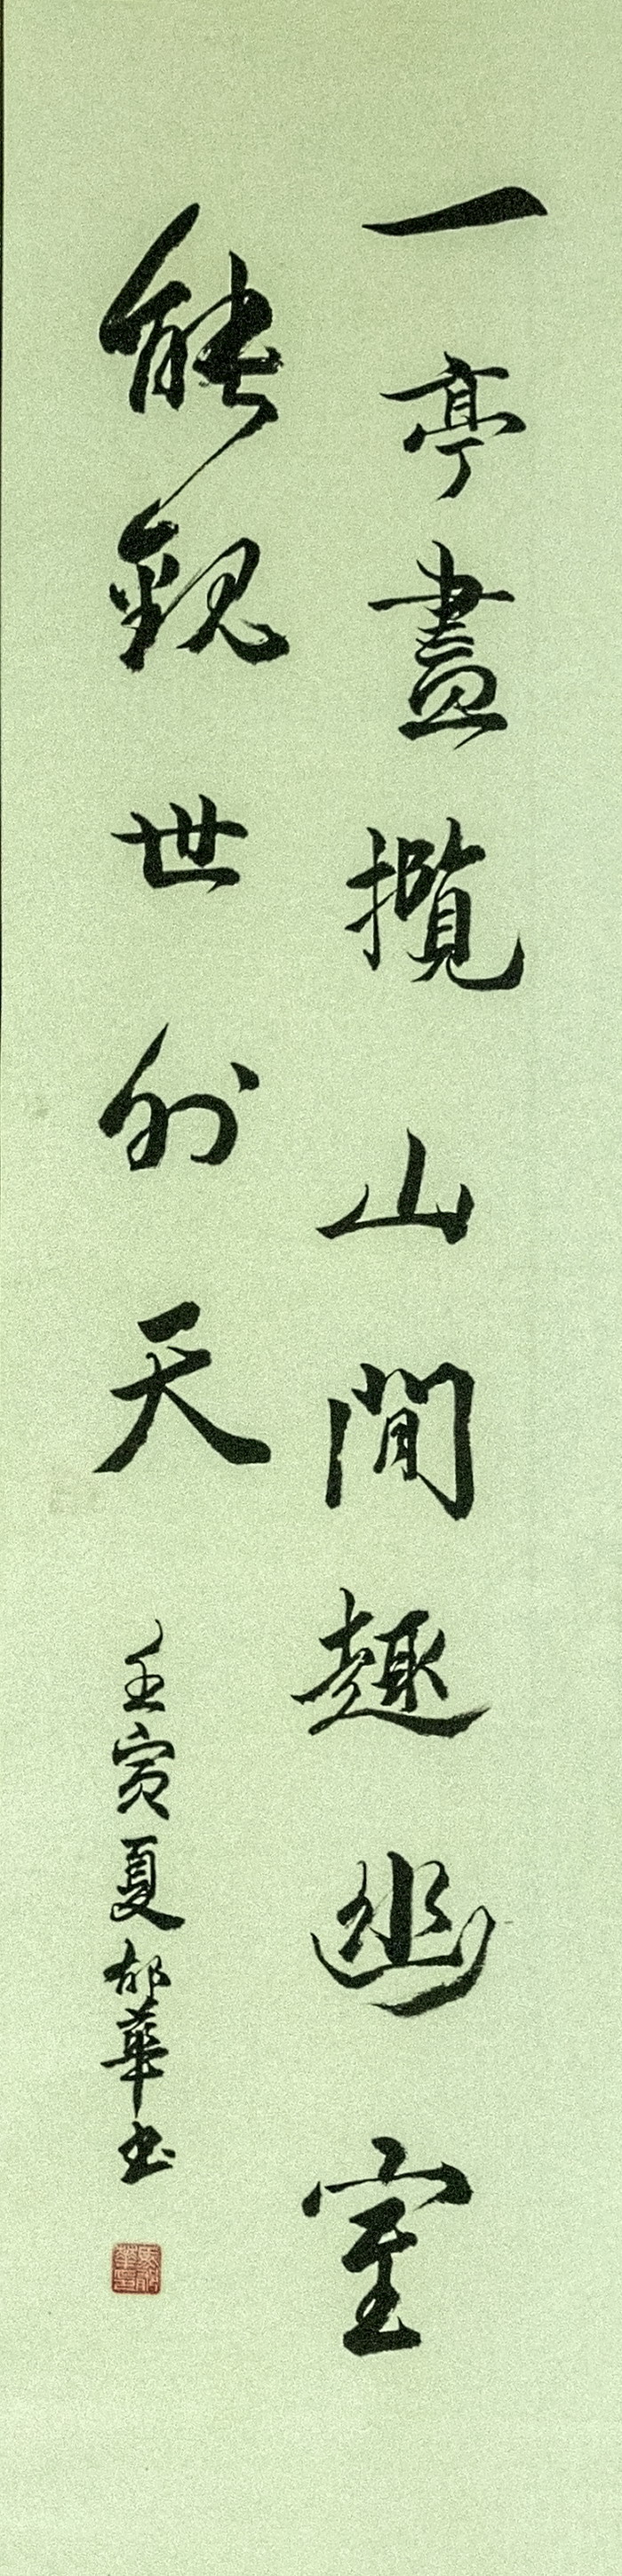 一亭盡攬山間趣幽室
能觀世外天
壬寅夏郁華书